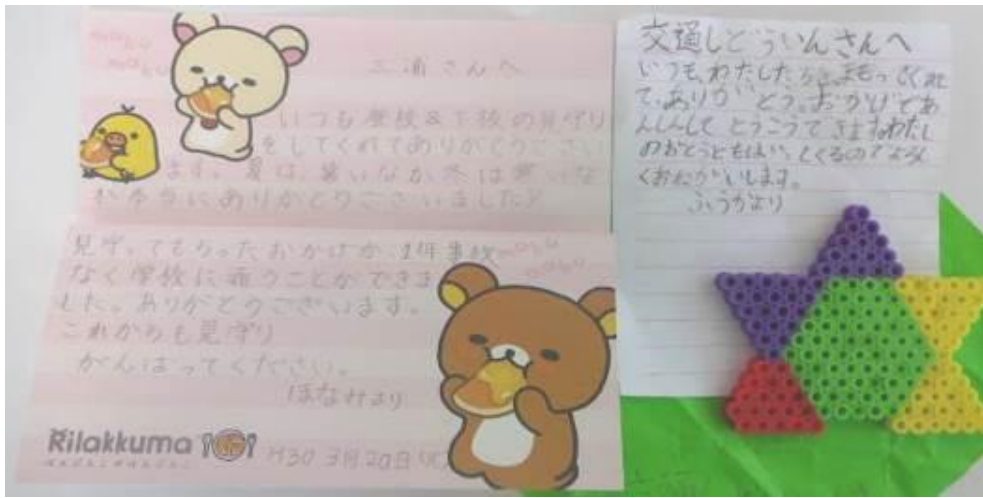 三浦さんへ
いつも登校&下校の見守り
をしてくれてありがとうござい
ます。夏は、暑いなか冬は寒いな
か本当にありがとうございました♪
見守ってもらったおかげか、1年事故
なく学校に通うことができま
した。ありがとうございます。
これからも見守り
がんばってください。
ほなみより
Rilakkuma
H30 3月20日(火)
交通しどういんさんへ
いつも、わたしたちを、まもってくれ
て、ありがとう。おかげであ
んしんして とうこうできますわたし
のおとうともはいってくるのでよろし
くおねがいします。
ふうかより